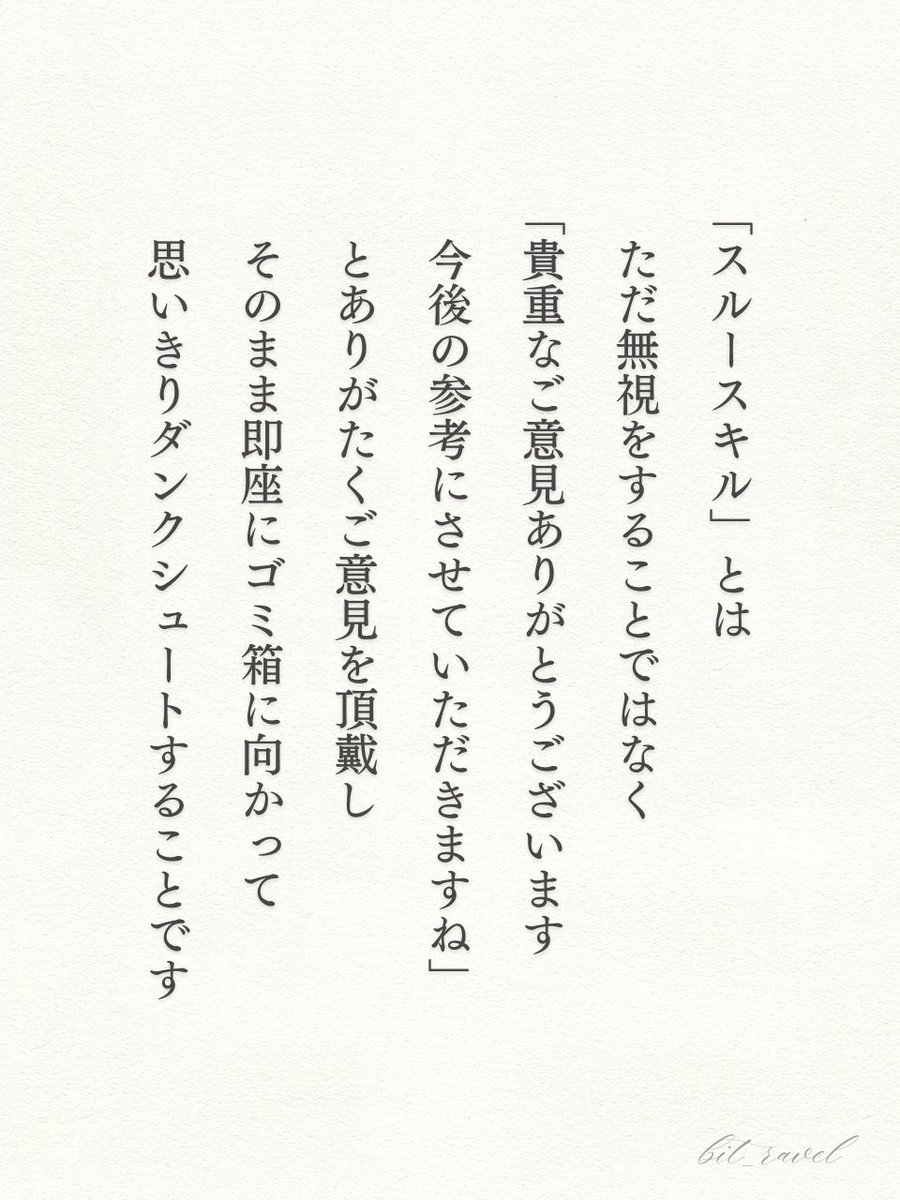 「スルースキル」とは
ただ無視をすることではなく
「貴重なご意見ありがとうございます
今後の参考にさせていただきますね」
とありがたくご意見を頂戴し
そのまま即座にゴミ箱に向かって
思いきりダンクシュートすることです
bit_ravel